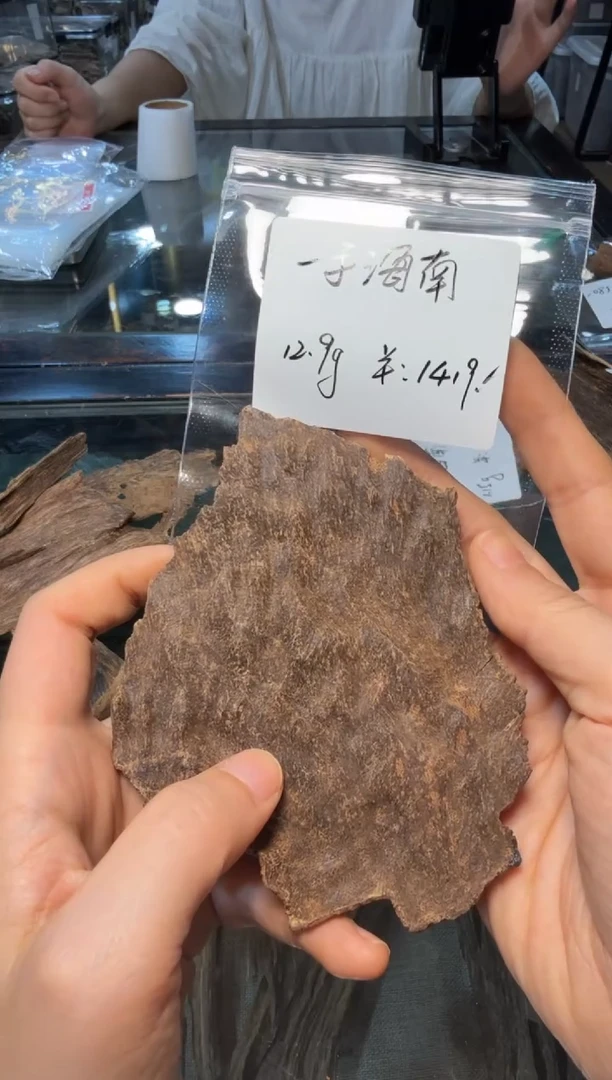 一子海南
12.9g 羊:1419.